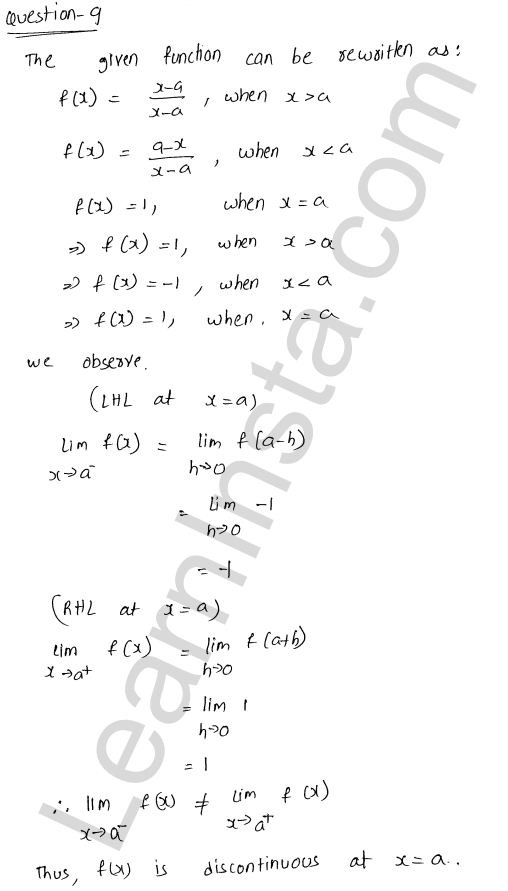 Question-9
The given function can be rewritten as:
f(x) = x-a / x-a , when x>a
f(x) = a-x / x-a , when x<a
f(x) = 1, when x = a
⇒ f(x) = 1, when x>a
⇒ f(x) = -1, when x<a
⇒ f(x) = 1, when. x = a
we observe.
(LHL at x=a)
lim x→a⁻ f(x) = lim h→0 f(a-h)
= lim h→0 -1
= -1
(RHL at x=a)
lim x→a⁺ f(x) = lim h→0 f(a+h)
= lim h→0 1
= 1
∴ lim x→a⁻ f(x) ≠ lim x→a⁺ f(x)
Thus, f(x) is discontinuous at x=a..
LearnInsta.com